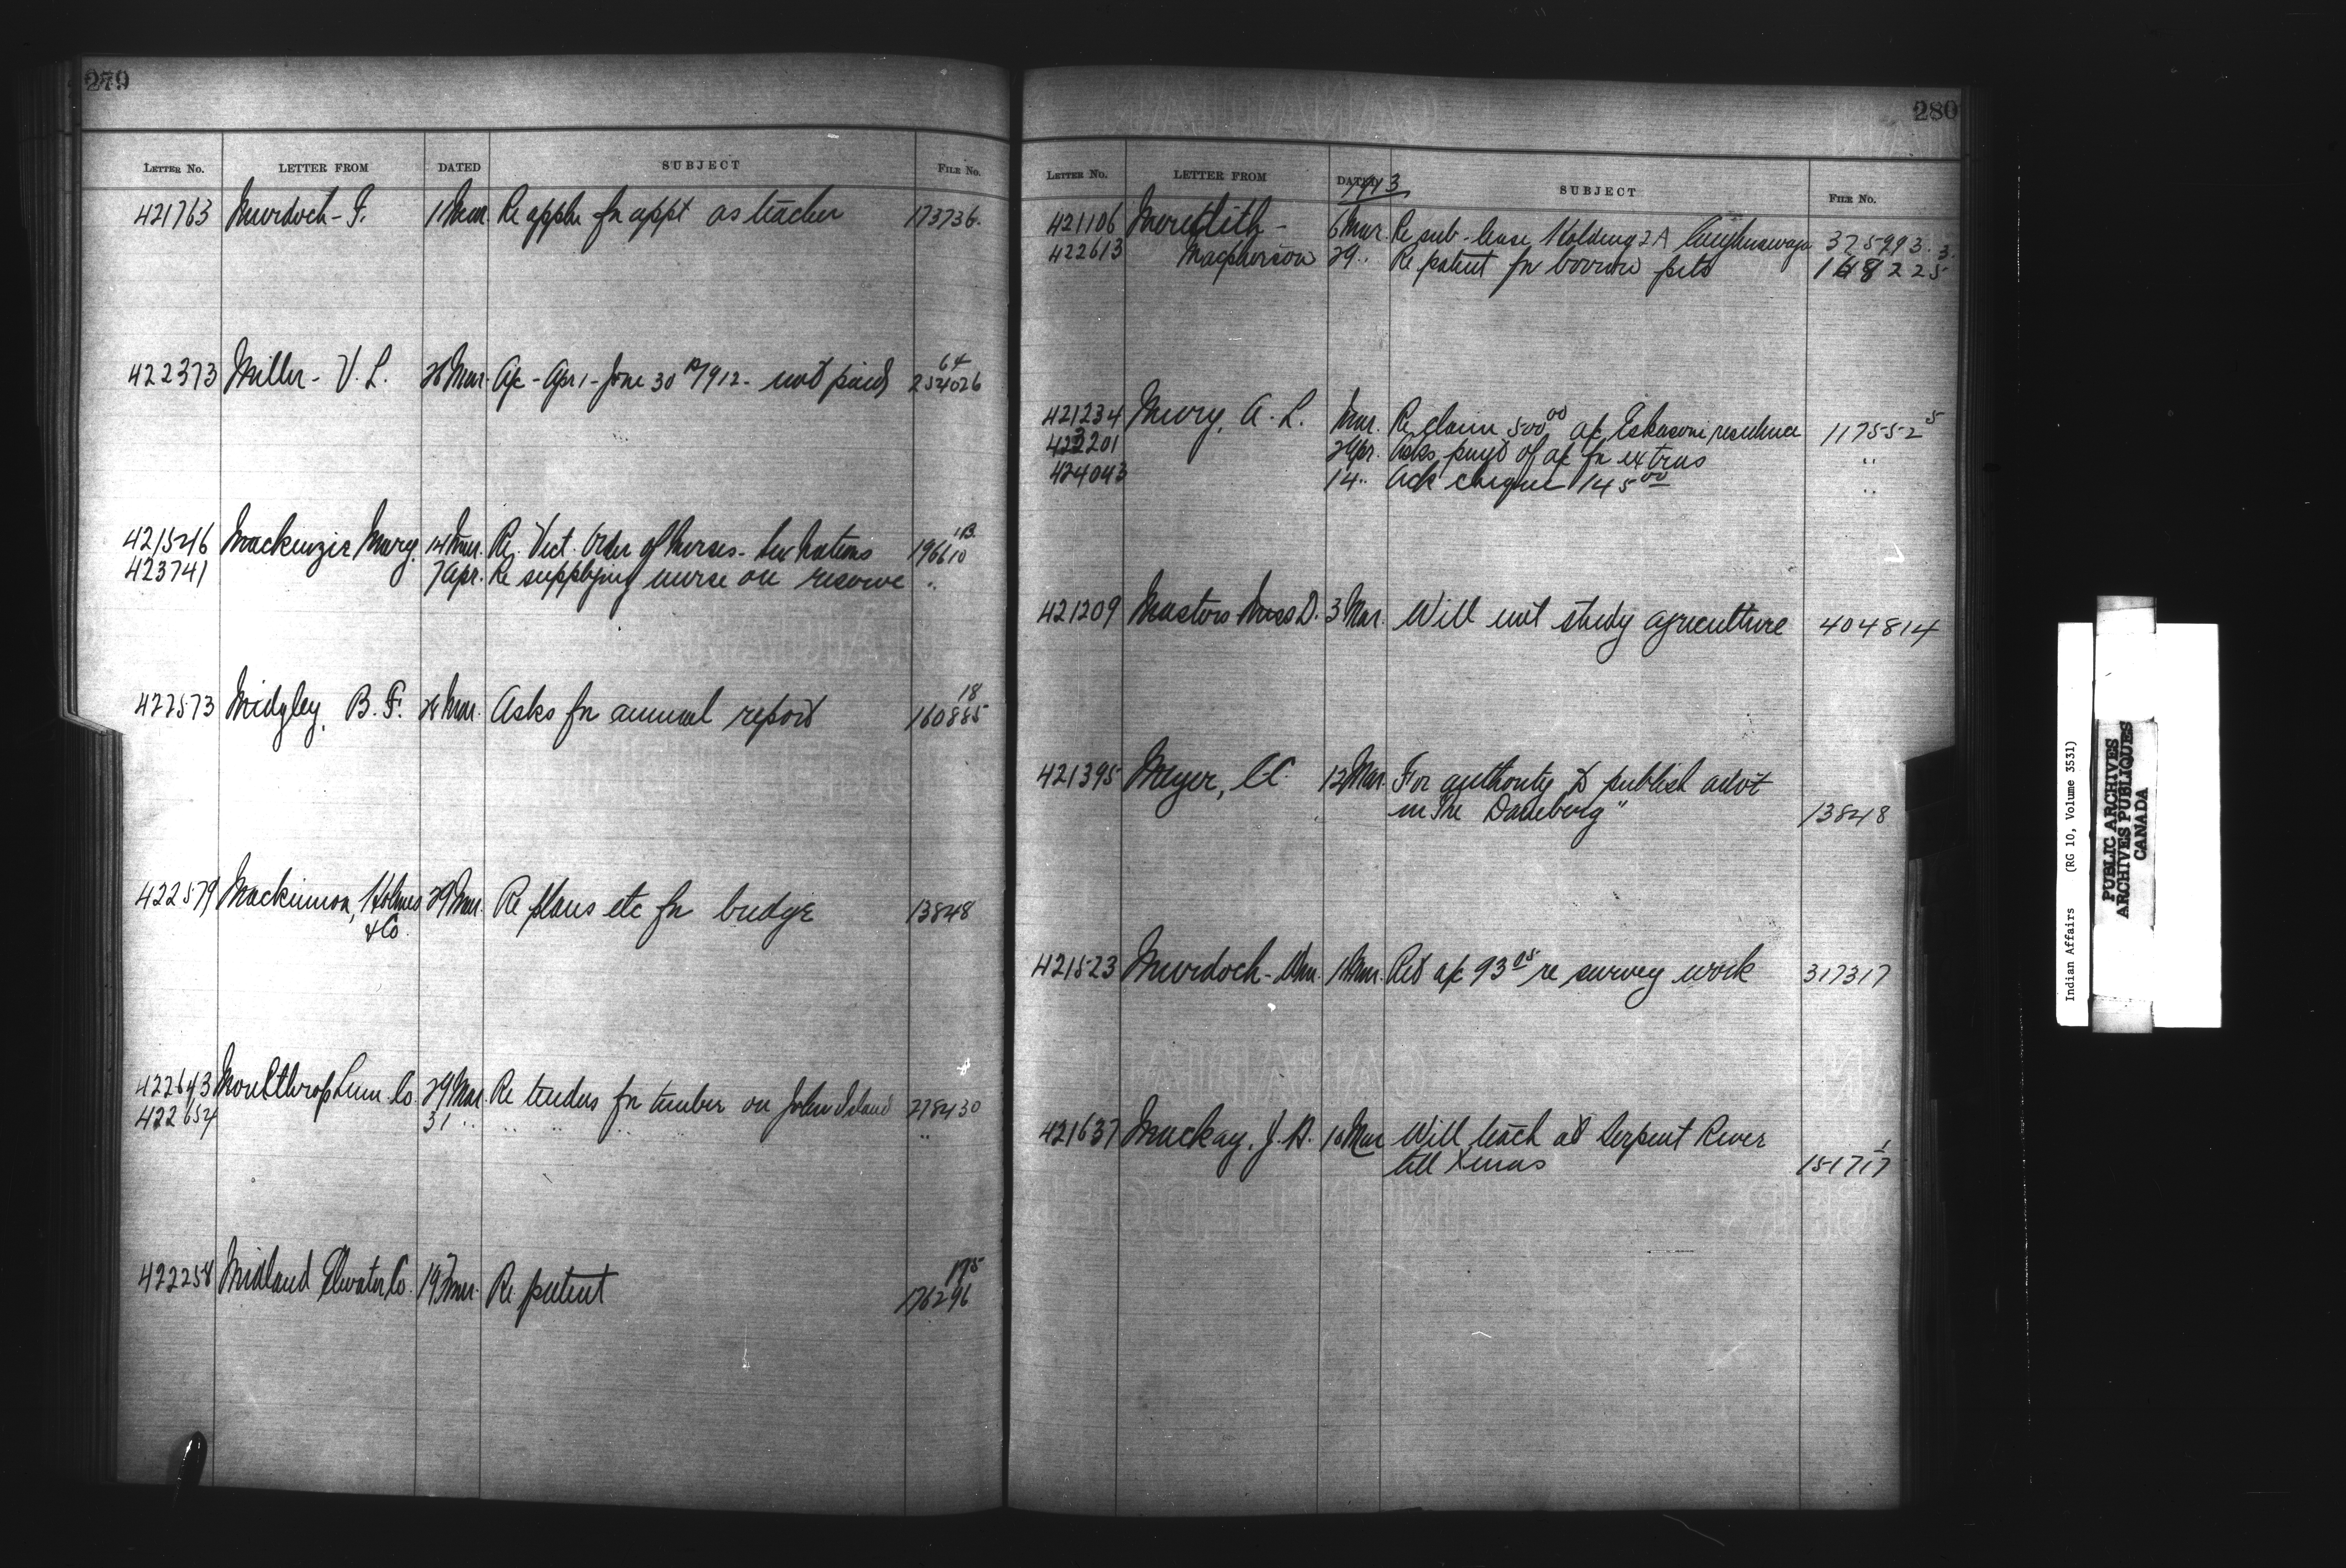 279
LETTER NO. LETTER FROM DATED SUBJECT FILE NO.
421763 Murdoch - F. 1 Mar Re appln for appt as teacher 173736.
422373 Miller - V. L. 28 Mar. A/c - Apr 1 - June 30th 1912 - not paid 254026 64
421546 Mackenzie Mary. 14 Mar. Re. Vict. Order of Nurses - Six Nations 196610 1B
423741 7 Apr. Re supplying nurse on reserve "
422573 Midgley, B. F. 28 Mar. Asks for annual report 160885 18
422579 Mackinnon, Holmes 29 Mar. Re plans etc for bridge 13848
& Co.
422643 Moulthrop Lum. Co. 29 Mar. Re tenders for timber on John Island 278430
422654 31 " " " " " " "
422258 Midland Elevator Co. 19 Mar. Re patent 176296 175
280
LETTER NO. LETTER FROM DATED SUBJECT FILE NO.
1913
421106 Meredith - 6 Mar. Re sub-lease Holding 2A Caughnawaga 375293.3
422613 Macpherson 29 " Re patent for borrow pits 148225
421234 Mury, A. L. Mar. Re claim 500.00 a/c Eskasoni residence 117552 5
423201 2 Apr. Asks paymt of a/c for extras "
424043 14 " Ack cheque 145.00 "
421209 Masters Miss D. 3 Mar. Will not study agriculture 404814
421395 Meyer, C C 12 Mar. For authority to publish advt
in The Daneborg" 13848
421523 Murdoch - Wm. Mar. Ret a/c 93.05 re survey work 317317
421637 Mackay, J. A. 18 Mar Will teach at Serpent River
till Xmas 151717 1
Indian Affairs (RG 10, Volume 3531)
PUBLIC ARCHIVES
ARCHIVES PUBLIQUES
CANADA